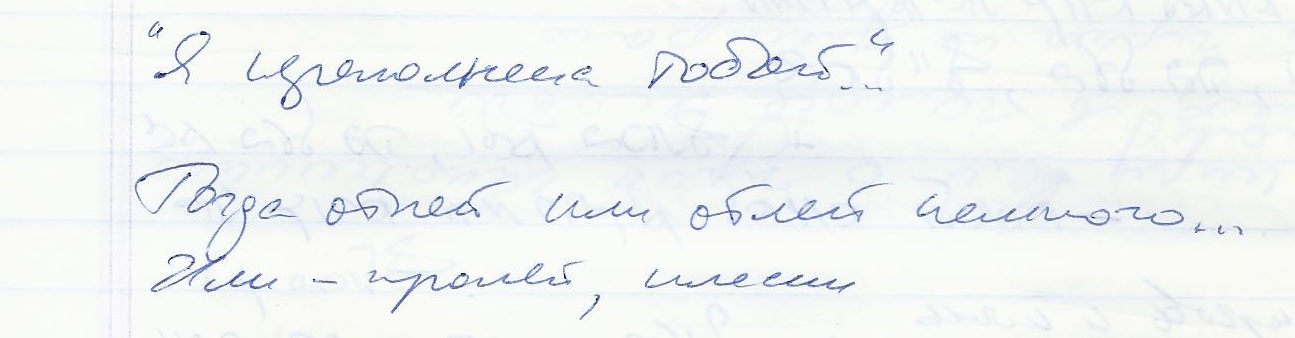 "Я преполнена тобой..."
Тогда отпей или отлей немного...
Или - пролей, плесни